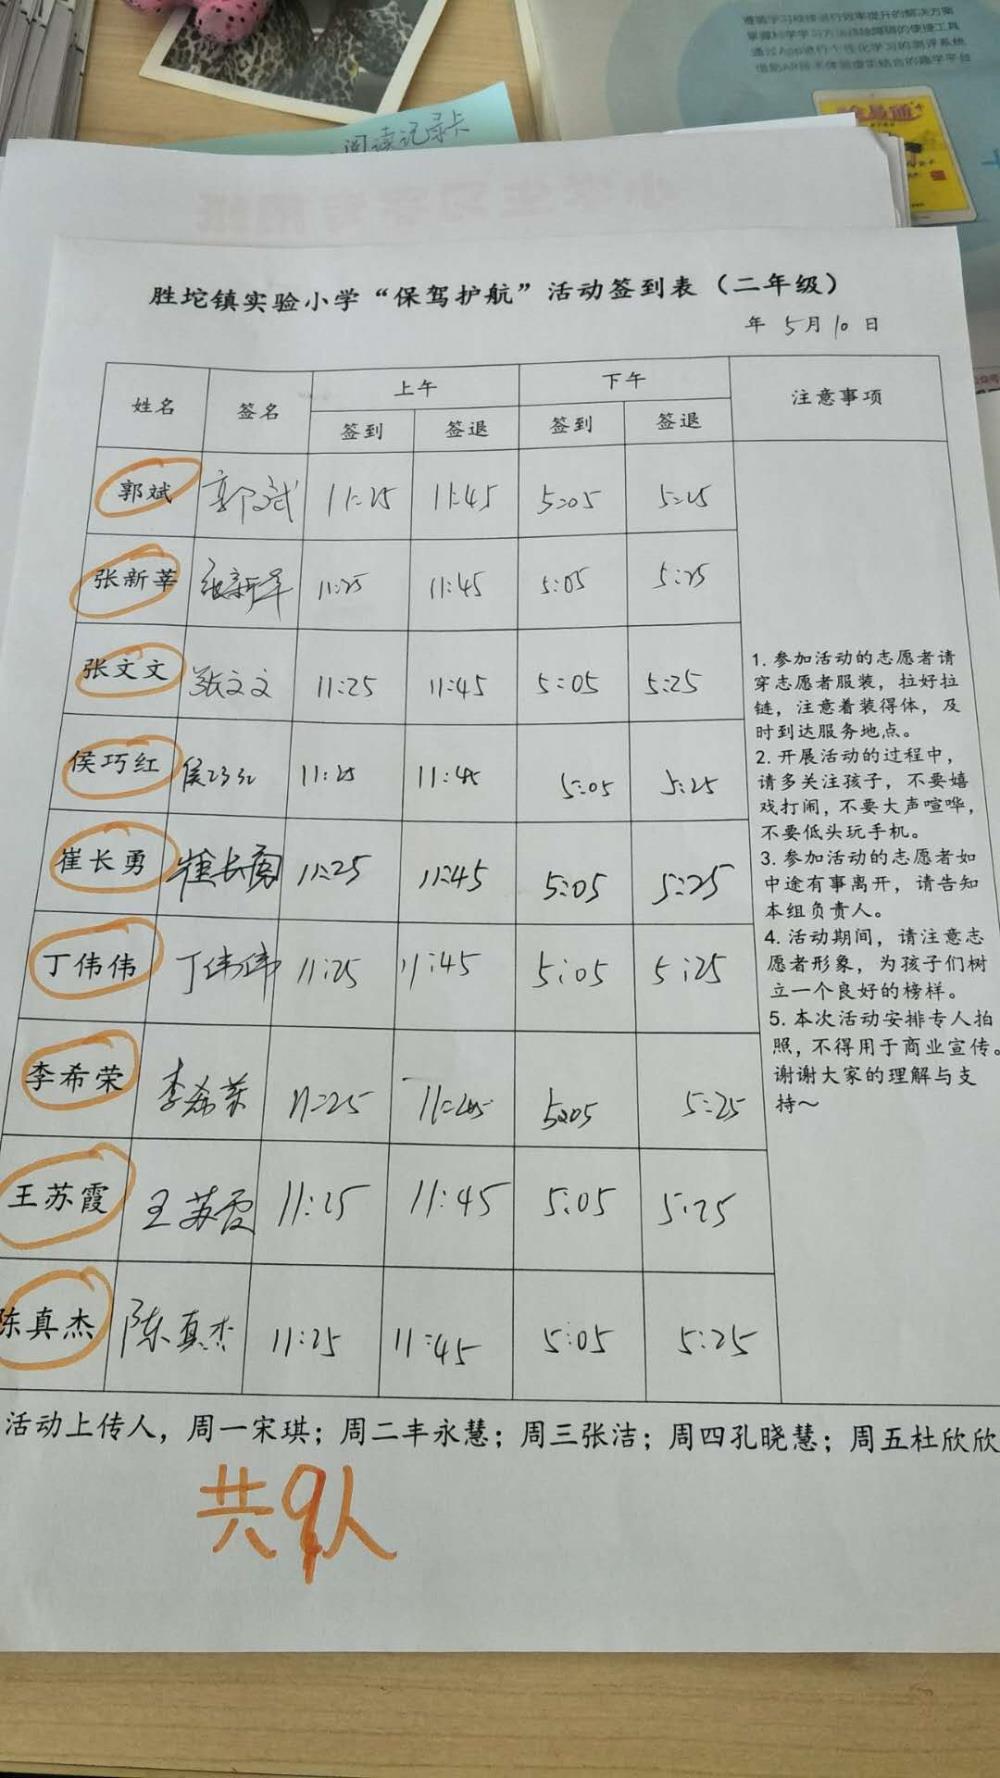 遵循学习规律进行效率提升的解决方案
掌握科学学习方法扫除障碍的便捷工具
通过App进行个性化学习的测评系统
借助AR技术体验虚实结合的趣学平台
全易通
阅读记录卡
胜坨镇实验小学“保驾护航”活动签到表（二年级）
年 5月10日
姓名 签名 上午 下午 注意事项
签到 签退 签到 签退
郭斌 郭斌 11:25 11:45 5:05 5:25
张新莘 张新莘 11:25 11:45 5:05 5:25
张文文 张文文 11:25 11:45 5:05 5:25
侯巧红 侯巧红 11:25 11:45 5:05 5:25
崔长勇 崔长勇 11:25 11:45 5:05 5:25
丁伟伟 丁伟伟 11:25 11:45 5:05 5:25
李希荣 李希荣 11:25 11:45 5:05 5:25
王苏霞 王苏霞 11:25 11:45 5:05 5:25
陈真杰 陈真杰 11:25 11:45 5:05 5:25
1. 参加活动的志愿者请
穿志愿者服装，拉好拉
链，注意着装得体，及
时到达服务地点。
2. 开展活动的过程中，
请多关注孩子，不要嬉
戏打闹，不要大声喧哗，
不要低头玩手机。
3. 参加活动的志愿者如
中途有事离开，请告知
本组负责人。
4. 活动期间，请注意志
愿者形象，为孩子们树
立一个良好的榜样。
5. 本次活动安排专人拍
照，不得用于商业宣传。
谢谢大家的理解与支
持～
活动上传人，周一宋琪；周二丰永慧；周三张洁；周四孔晓慧；周五杜欣欣
共9人